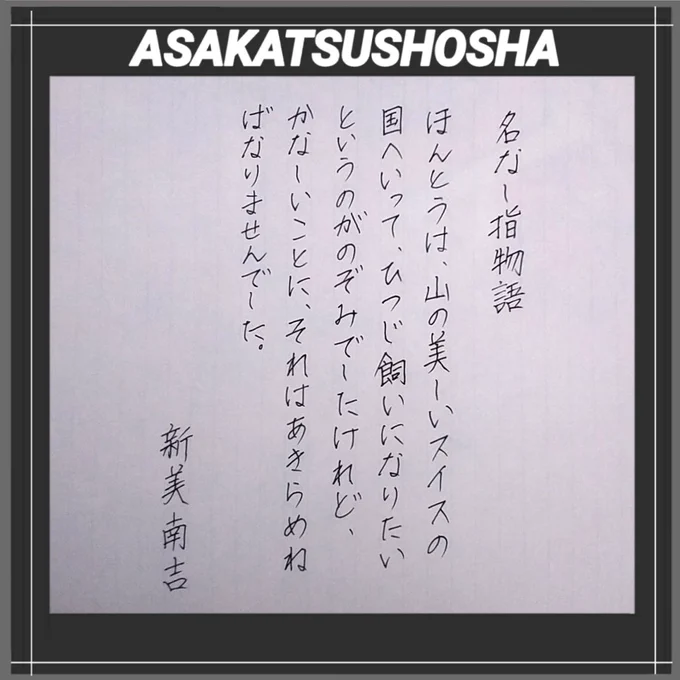 ASAKATSUSHOSHA
名なし指物語
ほんとうは、山の美しいスイスの
国へいって、ひつじ飼いになりたい
というのがのぞみでしたけれど、
かなしいことに、それはあきらめね
ばなりませんでした。
新美南吉